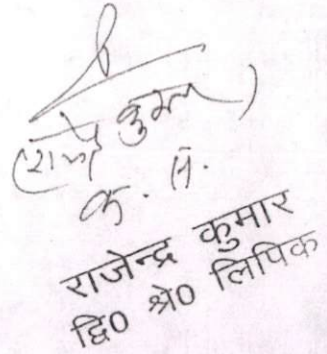 (राजेन्द्र कुमार)
क. स.
राजेन्द्र कुमार
द्वि0 श्रे0 लिपिक